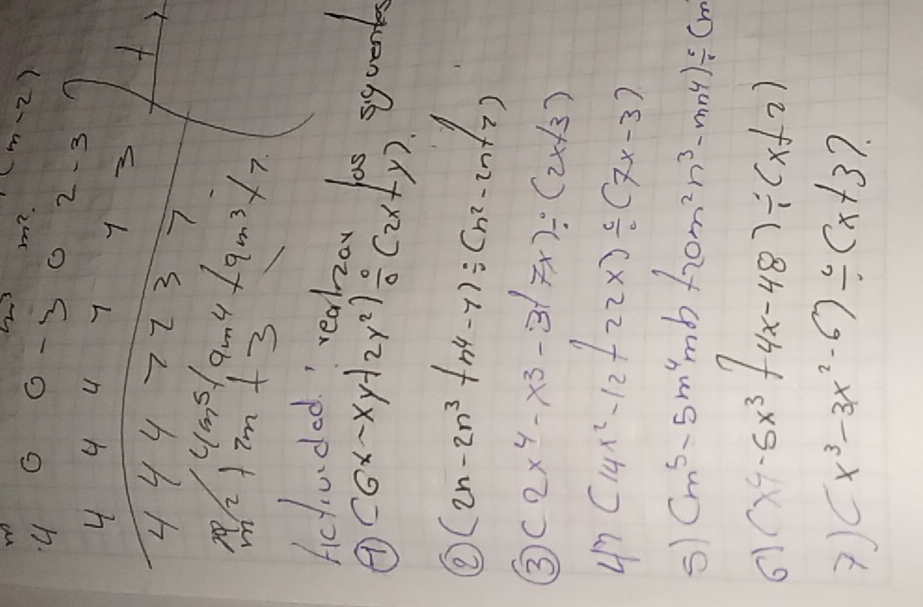 m m³ m² (m-2)
4 0 0 -3 0 2-3
4 4 4 7 7 3
4 4 4 7 7 3 7
4m⁵+9m⁴+9m³+7
m/2+2m+3
Actividad. realizar las siguientes
1) (6x-xy+2y²)÷(2x+y).
2) (2n-2n³+n4-7)÷(n²-2n+2)
3) (2x⁴-x³-3+7x)÷(2x+3)
4) (14x²-12+22x)÷(7x-3)
5) (m⁵-5m⁴mb+20m²n³-mn4)÷(m
6) (x4-5x³+4x-48)÷(x+2)
7) (x³-3x²-6)÷(x+3).